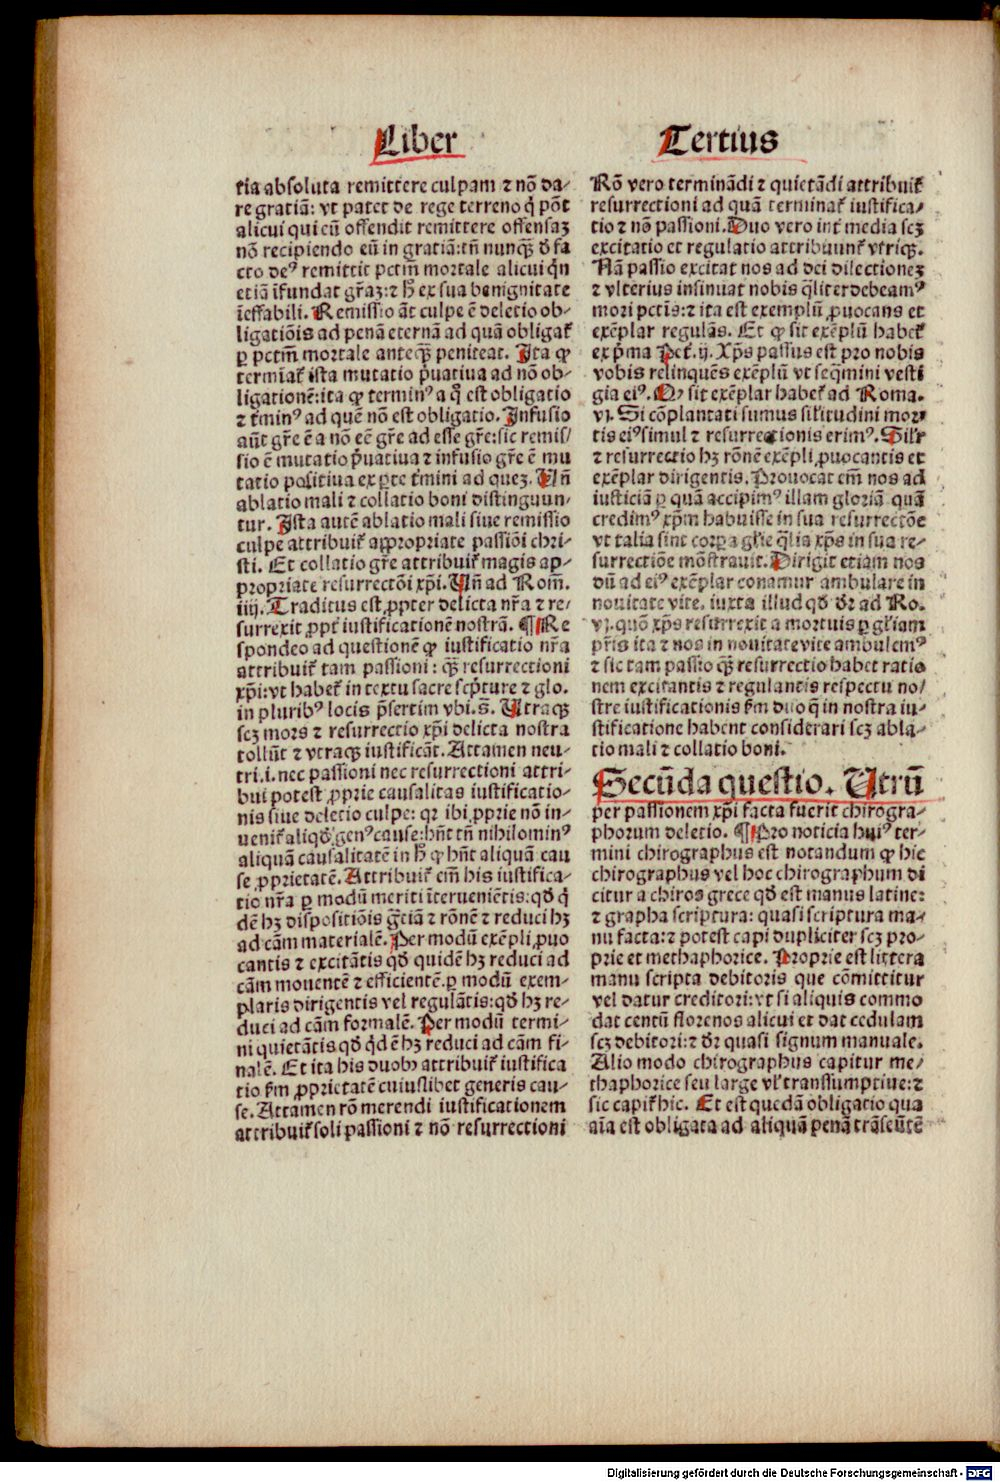 Liber Tertius
tia absoluta remittere culpam ⁊ nō da⸗
re gratiā: vt patet de rege terreno q̇ pōt
alicui qui eū offendit remittere offensaz
nō recipiendo eū in gratiā: tn̄ nunqꝫ d̄ fa
cto deꝰ remittit pctm̄ mortale alicui q̇n
etiā īfundat gr̄aꝫ: ⁊ h̄ ex sua benignitate
īeffabili. Remissio āt culpe ē deletio ob⸗
ligatiōis ad penā eternā ad quā obligat᷑
ꝑ pctm̄ mortale anteqꝫ peniteat. Ita ꝙ
termīat᷑ ista mutatio p̄uatiua ad nō ob⸗
ligationē: ita ꝙ terminꝰ a q̊ est obligatio
⁊ t̄minꝰ ad quē nō est obligatio. Infusio
aūt gr̄e ē a nō eē gr̄e ad esse gr̄e: sic remis⸗
sio ē mutatio p̄uatiua ⁊ infusio gr̄e ē mu
tatio positiua ex ꝑte t̄mini ad quez. Vn̄
ablatio mali ⁊ collatio boni distinguun⸗
tur. Ista autē ablatio mali siue remissio
culpe attribuit᷑ appropriate passiōi chri⸗
sti. Et collatio gr̄e attribuit᷑ magis ap⸗
propriate resurrectōi xp̄i. Vn̄ ad Rom̄.
iiij. Traditus est ꝓpter delicta nr̄a ⁊ re⸗
surrexit ꝓpt̄ iustificationē nostrā. ¶ Re
spondeo ad questionē ꝙ iustificatio nr̄a
attribuit᷑ tam passioni: qꝫ resurrectioni
xp̄i: vt habet᷑ in textu sacre scp̄ture ⁊ glo.
in pluribꝰ locis p̄sertim vbi. s̄. Vtraqꝫ
scꝫ mors ⁊ resurrectio xp̄i delicta nostra
tollūt ⁊ vtraqꝫ iustificāt. Attamen neu⸗
tri .i. nec passioni nec resurrectioni attri⸗
bui potest ꝓprie causalitas iustificatio⸗
nis siue deletio culpe: qr ibi ꝓprie nō in⸗
uenit᷑ aliqd̄ genꝰ cause: hn̄t tn̄ nihilominꝰ
aliquā causalitatē in h̄ ꝙ hn̄t aliquā cau
se ꝓprietatē. Attribuit᷑ em̄ his iustifica⸗
tio nr̄a ꝑ modū meriti īterueniētis: qd̄ q̇
dē hꝫ dispositiōis gr̄ciā ⁊ rōnē ⁊ reduci hꝫ
ad cām materialē. Per modū exēpli ꝓuo
cantis ⁊ excitātis qd̄ quidē hꝫ reduci ad
cām mouentē ⁊ efficientē. ꝑ modū exem⸗
plaris dirigentis vel regulātis: qd̄ hꝫ re⸗
duci ad cām formalē. Per modū termi⸗
ni quietātis qd̄ q̇dē hꝫ reduci ad cām fi⸗
nalē. Et ita his duobꝰ attribuit᷑ iustifica
tio fm̄ ꝓprietatē cuiuslibet generis cau⸗
se. Attamen rō merendi iustificationem
attribuit᷑ soli passioni ⁊ nō resurrectioni
Rō vero terminādi ⁊ quietādi attribuit᷑
resurrectioni ad quā terminat᷑ iustifica⸗
tio ⁊ nō passioni. Duo vero int̄ media scꝫ
excitatio et regulatio attribuunt᷑ vtriqꝫ.
Nā passio excitat nos ad dei dilectionez
⁊ vlterius insinuat nobis q̄liter debeamꝰ
mori pctīs: ⁊ ita est exemplū ꝓuocans et
exēplar regulās. Et ꝙ sit exēplū habet᷑
ex p̄ma Pet᷑. ij. Xp̄s passus est pro nobis
vobis relinquēs exēplū vt seq̄mini vesti
gia eiꝰ. Qꝫ sit exēplar habet᷑ ad Roma.
vi. Si cōplantati sumus sil̄itudini mor⸗
tis eiꝰ simul ⁊ resurrectionis erimꝰ. Sil̄r
⁊ resurrectio hꝫ rōnē exēpli ꝓuocantis et
exēplar dirigentis. Prouocat em̄ nos ad
iusticiā ꝑ quā accipimꝰ illam gloriā quā
credimꝰ xp̄m habuisse in sua resurrectōe
vt talia sint corꝑa gl̄ie q̄lia xp̄s in sua re⸗
surrectiōe mōstrauit. Dirigit etiam nos
dū ad eiꝰ exēplar conamur ambulare in
nouitate vite. iuxta illud qd̄ dr̄ ad Ro.
vi. quō xp̄s resurrexit a mortuis ꝑ gl̄iam
pr̄is ita ⁊ nos in nouitate vite ambulemꝰ
⁊ sic tam passio qꝫ resurrectio habet ratio
nem excitantis ⁊ regulantis respectu no⸗
stre iustificationis fm̄ duo q̄ in nostra iu⸗
stificatione habent considerari scꝫ abla⸗
tio mali ⁊ collatio boni.
Secūda questio. Vtrū
per passionem xp̄i facta fuerit chirogra⸗
phorum deletio. ¶ Pro noticia huiꝰ ter⸗
mini chirographus est notandum ꝙ hic
chirographus vel hoc chirographum di
citur a chiros grece qd̄ est manus latine:
⁊ grapha scriptura: quasi scriptura ma⸗
nu facta: ⁊ potest capi dupliciter scꝫ pro⸗
prie et methaphorice. Proprie est littera
manu scripta debitoris que cōmittitur
vel datur creditori: vt si aliquis commo
dat centū florenos alicui et dat cedulam
scꝫ debitori: ⁊ dr̄ quasi signum manuale.
Alio modo chirographus capitur me⸗
thaphorice seu large vl̓ transsumptiue: ⁊
sic capit᷑ hic. Et est quedā obligatio qua
aīa est obligata ad aliquā penā trāseūtē
Digitalisierung gefördert durch die Deutsche Forschungsgemeinschaft - DFG